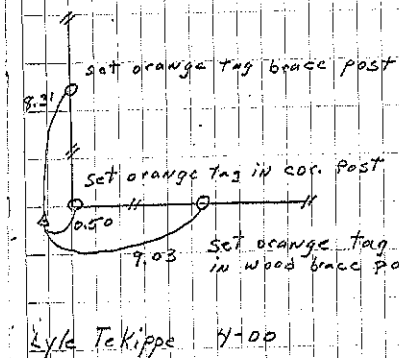 set orange tag brace post
8.31
set orange tag in cor. post
0.50
9.03
set orange tag
in wood brace po
Lyle TeKippe 4-00